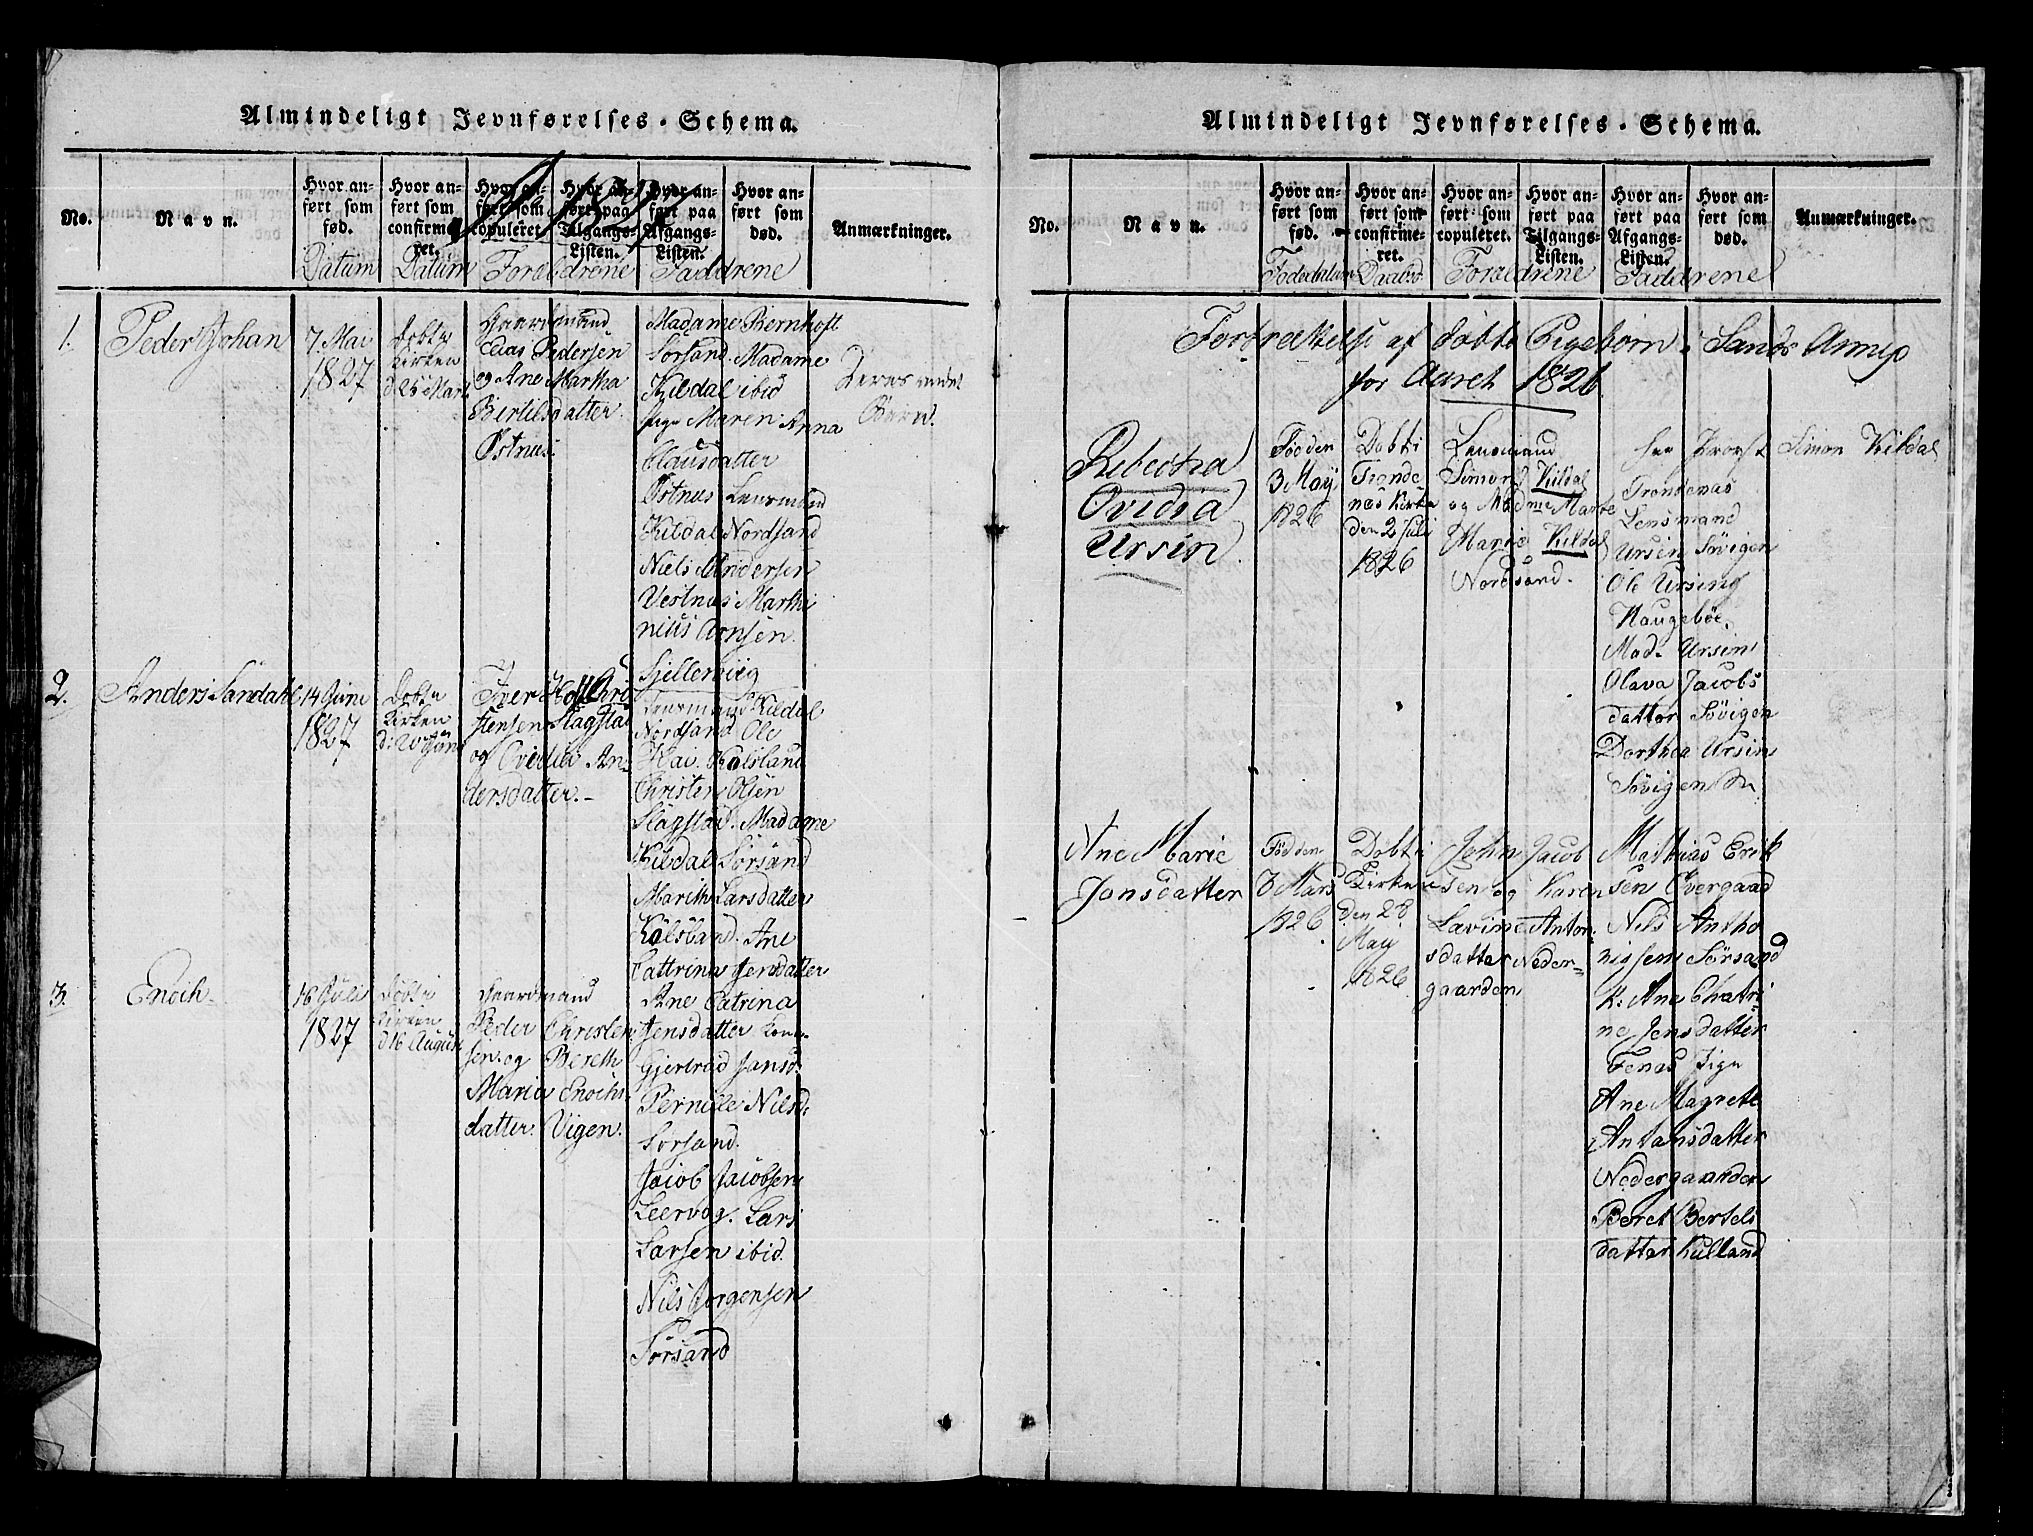 Almindeligt Jevnførelses-Schema.
No.
Navn.
Hvor anført som fød.
Hvor anført som confirmeret.
Hvor anført som copuleret.
Hvor anført paa Tilgangs-Listen.
Hvor anført paa Afgangs-Listen.
Hvor anført som død.
Anmærkninger.
Datum
Datum
Forældrene
Faddrene
1.
Peder Johan
7. Mai
1827
døbt
Kirken
Gaardmand
Elias Pedersen
og Ane Martha
Bertilsdatter
Østnus.
Madame Bernhoft
Sørsand. Madame
Kildal ibid
Pige Maren Anna
Clausdatter
Østnus Lensmand
Kildal Nordsand
Niels Andersen
Vestnus Marthi
nius Arnsen.
Deres
Barn.
2.
Anders Sandahl
14 Juni
1827
døbt
Kirken
Iver Chri
stensen Slagstad
og Ovidia An-
dersdatter.-
Lensmand Kildal
Nordsand Ole
Kai. Kalsland
Christen Olsen
Slagstad. Madame
Kildal Sørsand
Marith Larsdatter
Kalsland. Ane
Cattrina Jensdatter
3.
Enoch.
1827
døbt
Kirken
d 16 August
Gaardmand
Peder Christen
sen og Bereth
Maria Enochs-
datter. Vigen.
Ane Catrina
Jensdatter Kone
Gjertrud Jansd.
Pernille Nilsd.
Sørsand.
Jacob Jacobsen
Leervog. Lars
Larsen ibid.
Nils Jørgensen
Sørsand
Almindeligt Jevnførelses-Schema.
No.
Navn.
Hvor anført som fød.
Hvor anført som confirmeret.
Hvor anført som copuleret.
Hvor anført paa Tilgangs-Listen.
Hvor anført paa Afgangs-Listen.
Hvor anført som død.
Anmærkninger.
Fødedatum
Forældrene
Faddrene
Fortægtelse af døbte Pigebørn i Sands Annex
for Aaret 1826
Rebecka
Ovidia
Ursin
Fød den
3 May
1826
Døbt i
Tronde-
næs Kirke
den 2 Juli
1826
Lensmand
Simon Kildal
og Madme Marte
Maria Kildal
Nordsand.
Hr Provst Simon Kildal
Trondenæs
Lensmand
Ursin Søvigen
Ole Ursing
Haugebøe.
Mad. Ursin
Olava Jacobs
datter Søvigen
Dorthea Ursin
Søvigen
Ane Marie
Jonsdatter
Fød den
Mars
1826
Døbt i
Kirken
den 28
May
1826
John Jacob
sen og Karen
Lavine Anton-
sdatter Neder-
gaarden
Mathias Erik
sen Overgaard
Nils Antho
nissen Sørsand
K. Ane Chatri
ne Jensdatter
Fenas Pige
Ane Magrete
Antonsdatter
Nedergaarden
Beret Bertels
datter Kulland